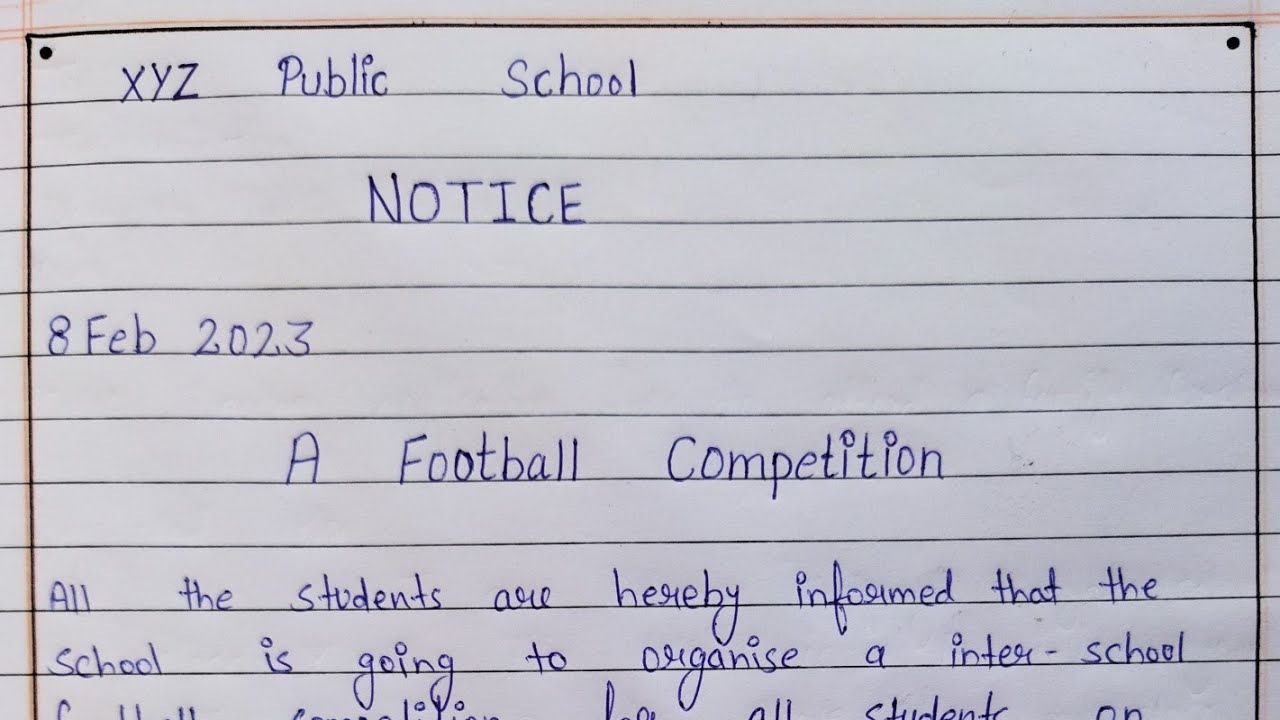 XYZ Public School
NOTICE
8 Feb 2023
A Football Competition
All the students are hereby informed that the
school is going to organise a inter-school
football competition for all students on